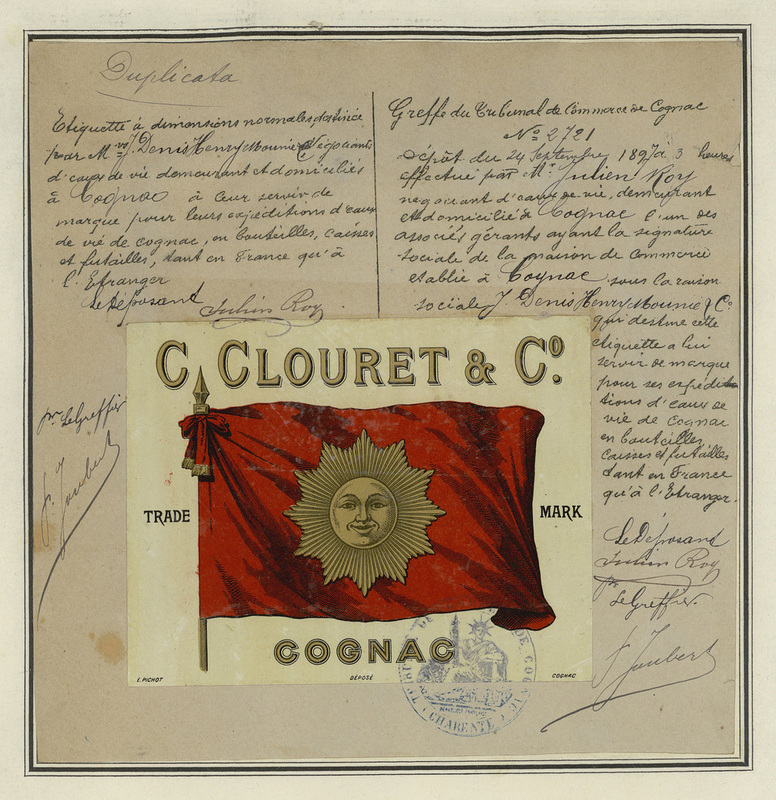 Duplicata
Etiquette à dimensions normales destinée
par M.rs J. Denis Henry Mounié & Cº Négociants
d'eaux de vie demeurant et domiciliés
à Cognac à leur servir de
marque pour leurs expéditions d'eaux
de vie de cognac, en bouteilles, caisses
et futailles, tant en France qu'à
l'Etranger
Le Déposant
Julien Roy
pr Le Greffier
J. Joubert
Greffe du Tribunal de Commerce de Cognac
Nº 2721
Dépôt du 24 Septembre 1897 à 3 heures
effectué par Mr. Julien Roy
négociant d'eaux de vie, demeurant
et domicilié à Cognac l'un des
associés gérants ayant la signature
sociale de la maison de commerce
établie à Cognac sous la raison
sociale J. Denis Henry Mounié & Cº
qui destine cette
étiquette a lui
servir de marque
pour ses expédi-
tions d'eaux de
vie de Cognac
en bouteilles,
caisses et futailles
tant en France
qu'à l'Etranger.
Le Déposant
Julien Roy
pr
Le Greffier.
J. Joubert
C. CLOURET & Cº.
TRADE MARK
COGNAC
E. PICHOT DÉPOSÉ COGNAC
CHARENTE